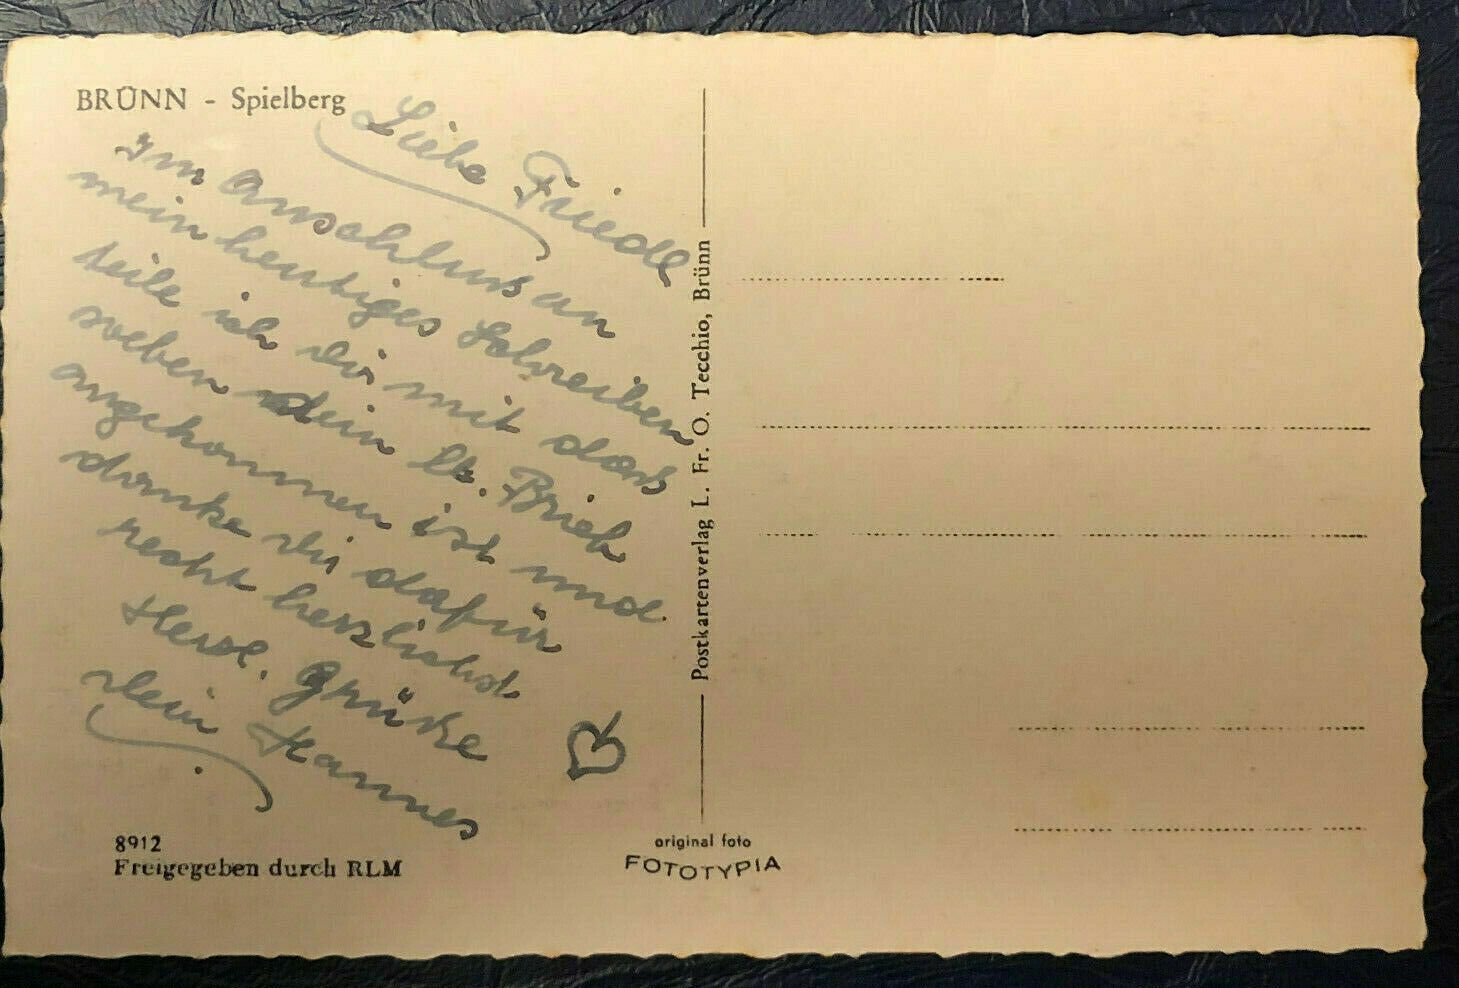 BRÜNN - Spielberg
Liebe Friedl
Im Anschluß an
mein heutiges Schreiben
teile ich dir mit daß
soeben dein lb. Brief
angekommen ist und
danke dir dafür
recht herzlichst
Herzl. Grüße
dein Hannes
8912
Freigegeben durch RLM
Postkartenverlag L. Fr. O. Tecchio, Brünn
original foto
FOTOTYPIA